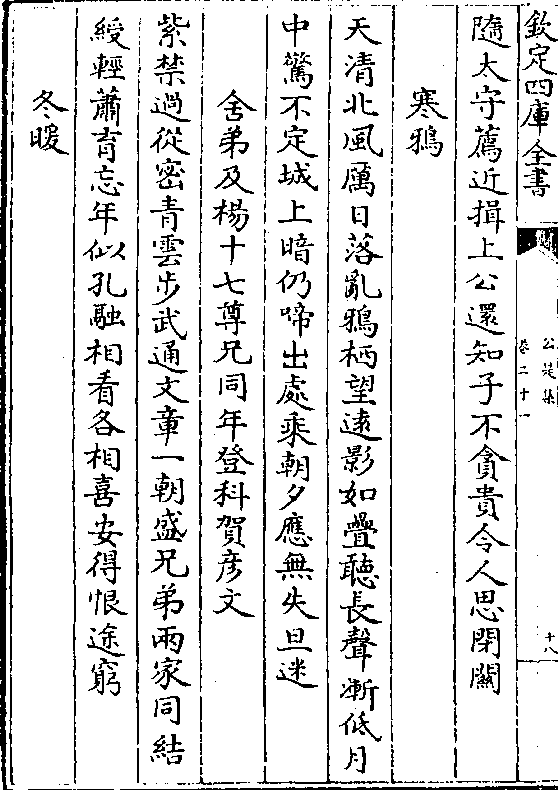 欽定四庫全書
公是集
卷二十一
十八
隨太守薦近揖上公還知子不貪貴令人思閉關
寒鴉
天清北風厲日落亂鴉栖望逺影如疊聽長聲漸低月
中驚不定城上暗仍啼出處乘朝夕應無失旦迷
舍弟及楊十七尊兄同年登科賀彦文
紫禁過從密青雲歩武通文章一朝盛兄弟兩家同結
綬輕蕭育忘年似孔融相看各相喜安得恨途窮
冬暖